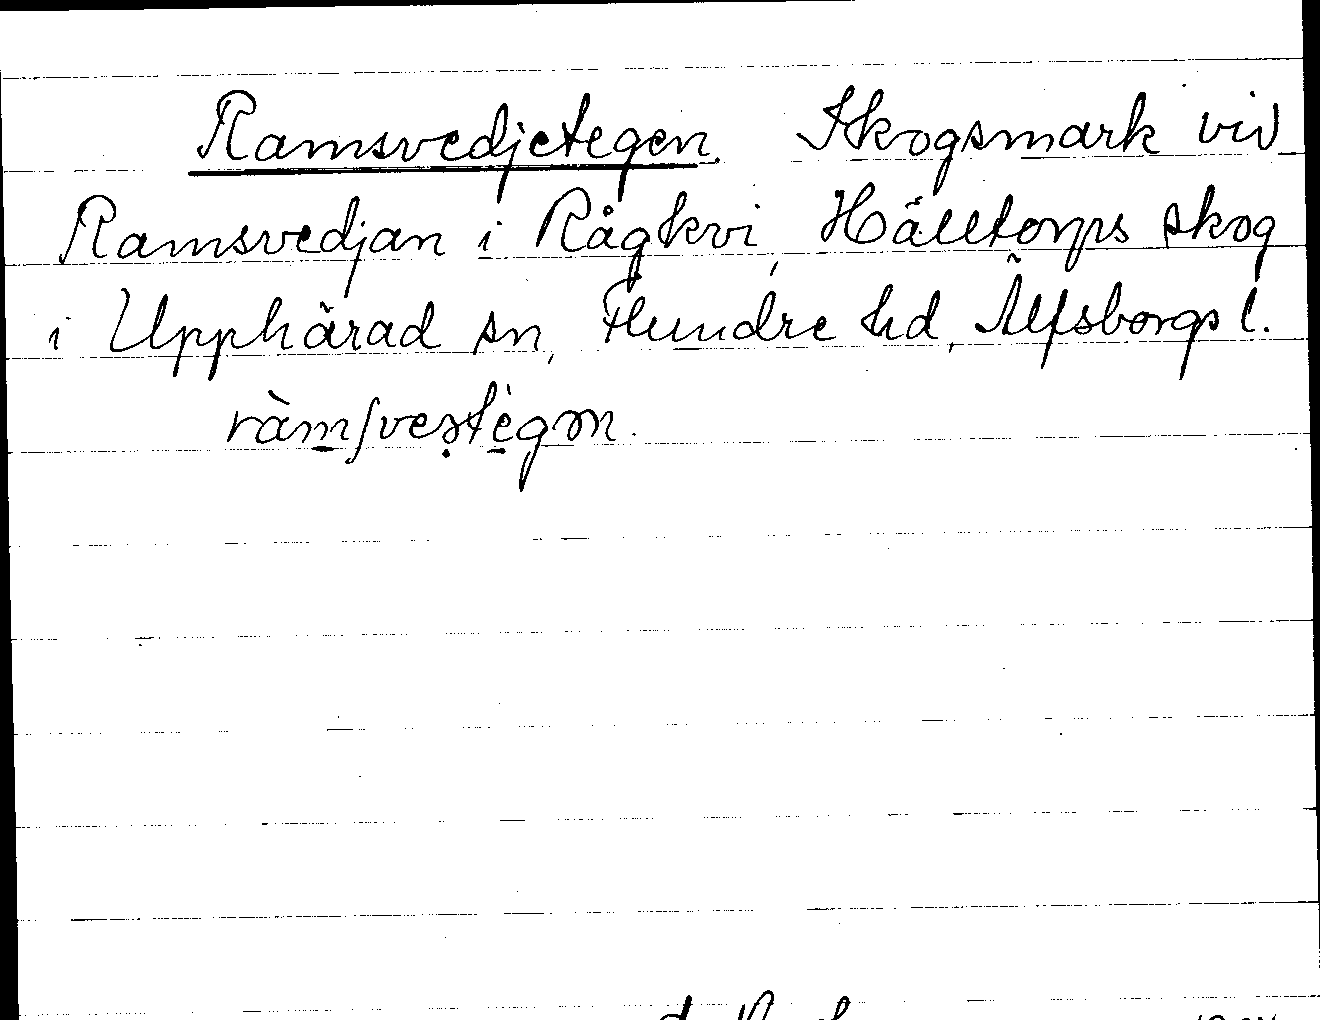 Ramsvedjetegen. Skogsmark vid
Ramsvedjan i Rågkvi, Hälltorps skog
i Upphärad sn, Flundre hd, Älfsborgs l.
ràmʃveṣtègən.